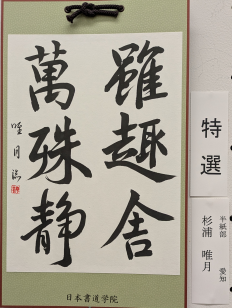 雖趣舎
萬殊静
唯月臨
日本書道学院
特選
半紙部 愛知
杉浦 唯月